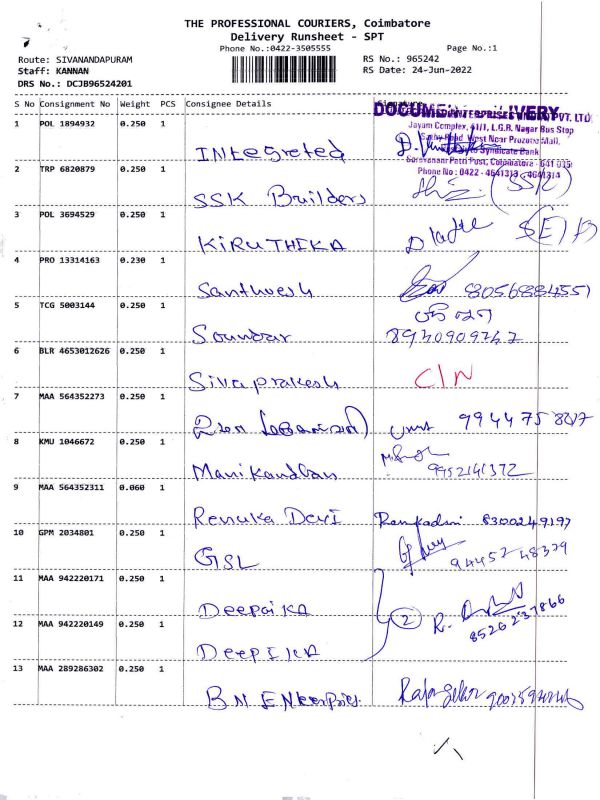 THE PROFESSIONAL COURIERS, Coimbatore
Delivery Runsheet - SPT
Phone No.:0422-3505555
Page No.:1
Route: SIVANANDAPURAM
RS No.: 965242
Staff: KANNAN
RS Date: 24-Jun-2022
DRS No.: DCJB96524201
S No Consignment No Weight PCS Consignee Details Signature
DOCUMENT DELIVERY
ENTERPRISES PVT. LTD
Jayam Complex, 41/1, L.G.R. Nagar Bus Stop
Road, West Near Prozone Mall,
Syndicate Bank
Saravanam Patti Post, Coimbatore - 641 035
Phone No : 0422 - 4641313, 4641314
1 POL 1894932 0.250 1
INtegreted
2 TRP 6820879 0.250 1
SSK Builders (SSK)
3 POL 3694529 0.250 1
KIRUTHIKA
4 PRO 13314163 0.230 1
Santhosh 8056884551
5 TCG 5003144 0.250 1
Soundar 8930909767
6 BLR 4653012626 0.250 1
Sivaprakesh C/N
7 MAA 564352273 0.250 1
8 KMU 1046672 0.250 1
Manikandban 9952141372
9 MAA 564352311 0.060 1
Renuka Devi 8300249197
10 GPM 2034801 0.250 1
GSL 94457 48379
11 MAA 942220171 0.250 1
Deepika
2 R.
8526237866
12 MAA 942220149 0.250 1
DeepIKA
13 MAA 289286302 0.250 1
BN ENterpries.